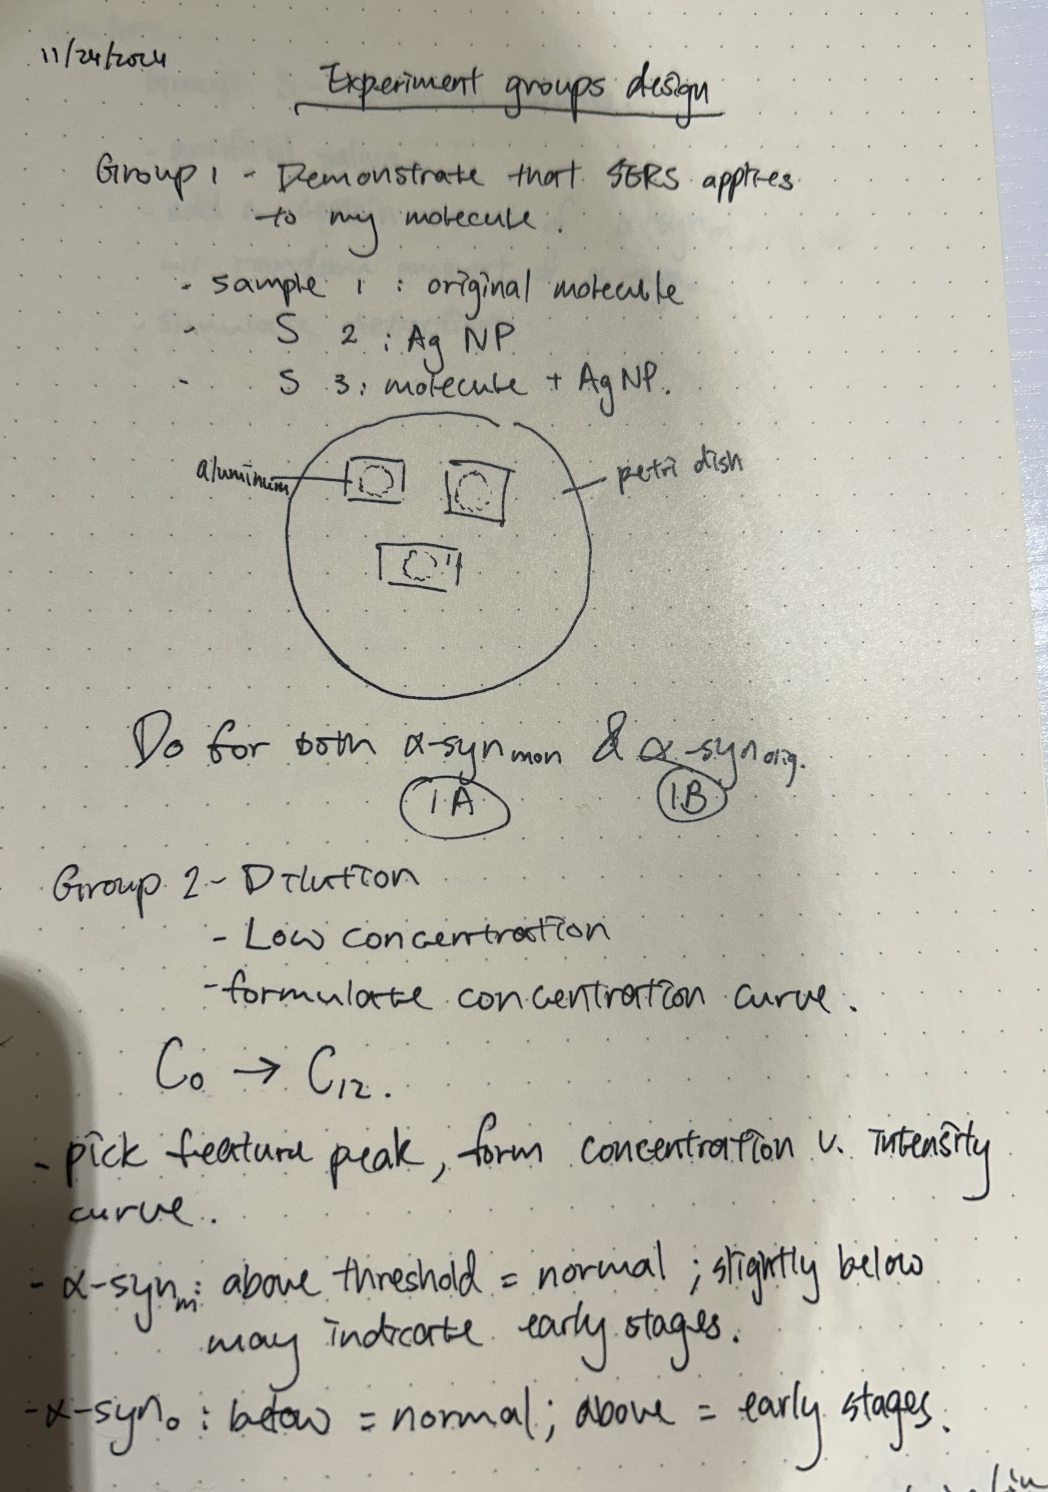 11/24/2024
Experiment groups design
Group 1 - Demonstrate that SERS applies
to my molecule.
- sample 1 : original molecule
- S 2 : Ag NP
- S 3 : molecule + Ag NP.
aluminum
petri dish
Do for both α-syn mon & α-syn olig.
1A 1B
Group 2 - Dilution
- Low concentration
- formulate concentration curve.
C₀ → C₁₂.
- pick feature peak, form concentration v. intensity
curve.
- α-synₘ: above threshold = normal ; slightly below
may indicate early stages.
- α-synₒ : below = normal; above = early stages.